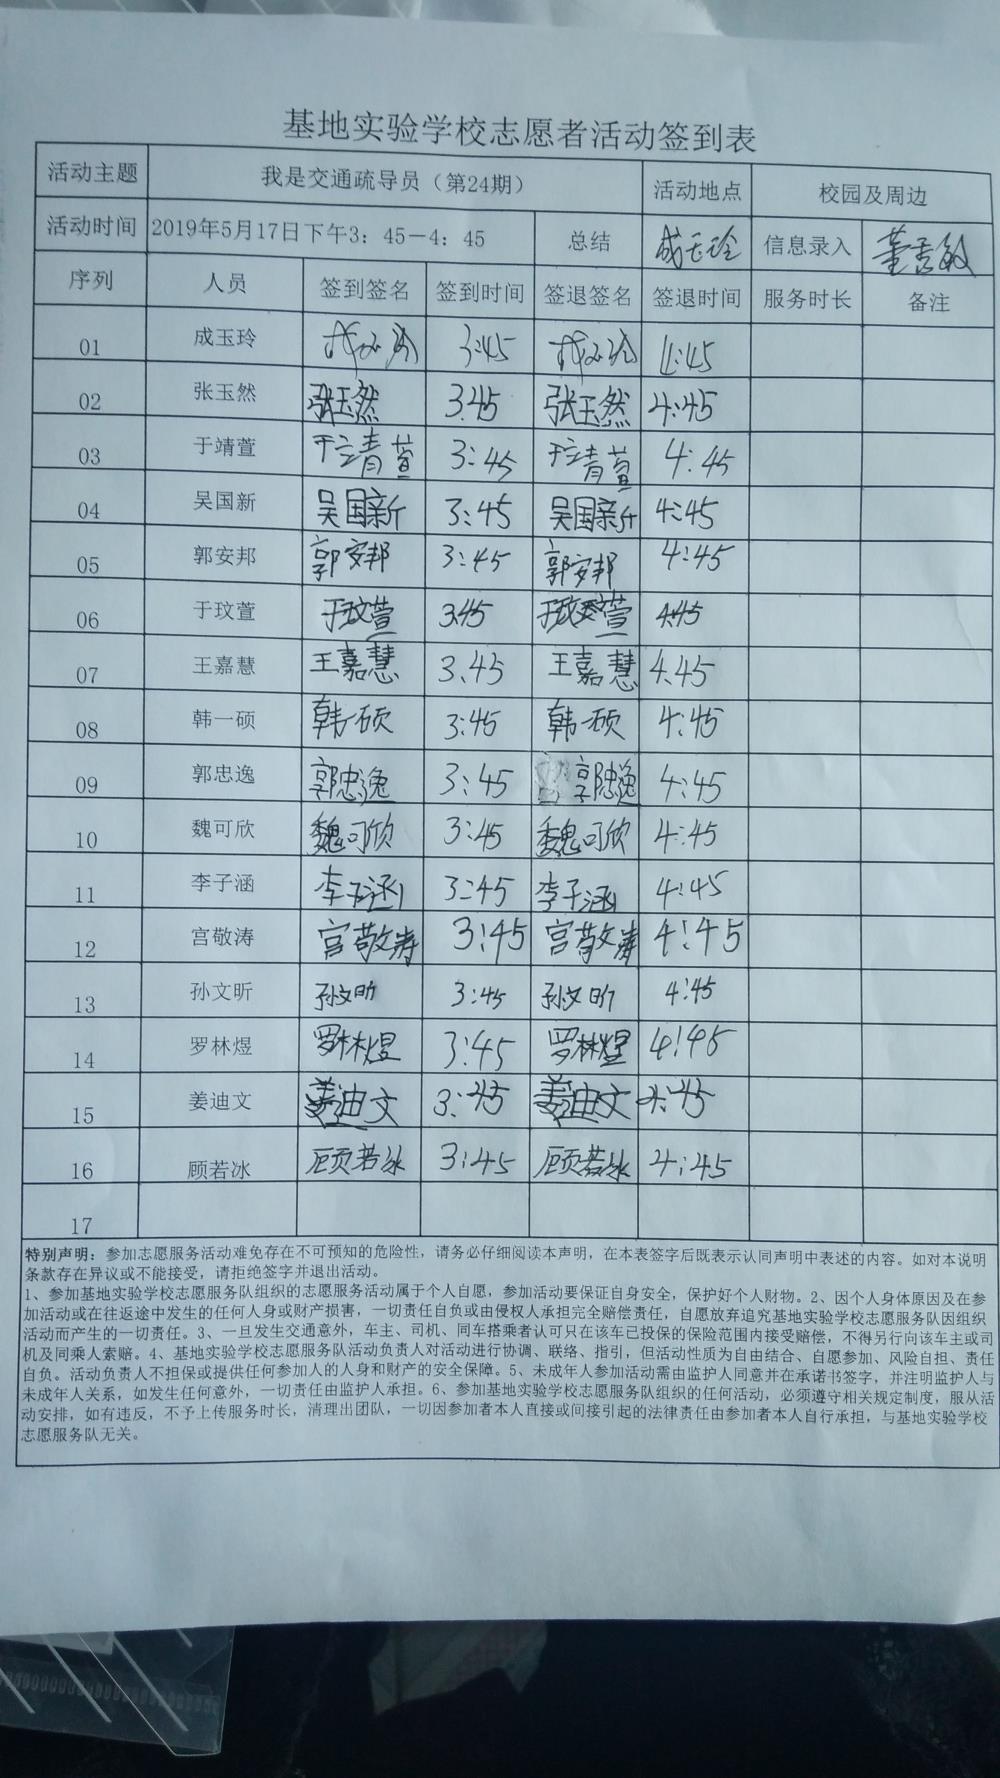 基地实验学校志愿者活动签到表
活动主题 我是交通疏导员（第24期） 活动地点 校园及周边
活动时间 2019年5月17日下午3：45－4：45 总结 成玉玲 信息录入
序列 人员 签到签名 签到时间 签退签名 签退时间 服务时长 备注
01 成玉玲 成玉玲 3:45 成玉玲 4:45
02 张玉然 张玉然 3:45 张玉然 4:45
03 于靖萱 于靖萱 3:45 于靖萱 4:45
04 吴国新 吴国新 3:45 吴国新 4:45
05 郭安邦 郭安邦 3:45 郭安邦 4:45
06 于玟萱 于玟萱 3:45 于玟萱 4:45
07 王嘉慧 王嘉慧 3:45 王嘉慧 4:45
08 韩一硕 韩一硕 3:45 韩一硕 4:45
09 郭忠逸 郭忠逸 3:45 郭忠逸 4:45
10 魏可欣 魏可欣 3:45 魏可欣 4:45
11 李子涵 李子涵 3:45 李子涵 4:45
12 宫敬涛 宫敬涛 3:45 宫敬涛 4:45
13 孙文昕 孙文昕 3:45 孙文昕 4:45
14 罗林煜 罗林煜 3:45 罗林煜 4:45
15 姜迪文 姜迪文 3:45 姜迪文 4:45
16 顾若冰 顾若冰 3:45 顾若冰 4:45
17
特别声明：参加志愿服务活动难免存在不可预知的危险性，请务必仔细阅读本声明，在本表签字后既表示认同声明中表述的内容。如对本说明
条款存在异议或不能接受，请拒绝签字并退出活动。
1、参加基地实验学校志愿服务队组织的志愿服务活动属于个人自愿，参加活动要保证自身安全，保护好个人财物。2、因个人身体原因及在参
加活动或在往返途中发生的任何人身或财产损害，一切责任自负或由侵权人承担完全赔偿责任，自愿放弃追究基地实验学校志愿服务队因组织
活动而产生的一切责任。3、一旦发生交通意外，车主、司机、同车搭乘者认可只在该车已投保的保险范围内接受赔偿，不得另行向该车主或司
机及同乘人索赔。4、基地实验学校志愿服务队活动负责人对活动进行协调、联络、指引，但活动性质为自由结合、自愿参加、风险自担、责任
自负。活动负责人不担保或提供任何参加人的人身和财产的安全保障。5、未成年人参加活动需由监护人同意并在承诺书签字，并注明监护人与
未成年人关系，如发生任何意外，一切责任由监护人承担。6、参加基地实验学校志愿服务队组织的任何活动，必须遵守相关规定制度，服从活
动安排，如有违反，不予上传服务时长，清理出团队，一切因参加者本人直接或间接引起的法律责任由参加者本人自行承担，与基地实验学校
志愿服务队无关。